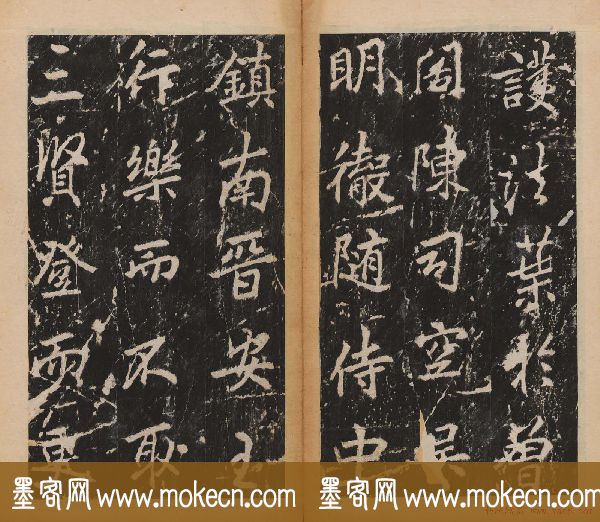 護法業於曾
因陳司空吳
明徹隨侍中
鎮南晉安王
樂而不
三賢登而
墨客网 www.mokecn.com 墨客网 www.mokecn.com